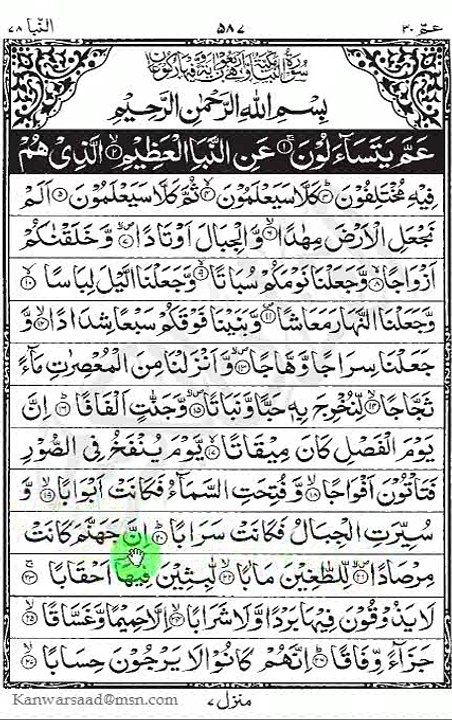 عمّ ٣٠ ٥٨٧ النبا ٧٨
بِسْمِ اللهِ الرَّحْمٰنِ الرَّحِيْمِ
عَمَّ يَتَسَآءَلُوْنَ ۚ﴿۱﴾ عَنِ النَّبَاِ الْعَظِيْمِ ۙ﴿۲﴾ الَّذِىْ هُمْ
فِيْهِ مُخْتَلِفُوْنَ ؕ﴿۳﴾ كَلَّا سَيَعْلَمُوْنَ ۙ﴿۴﴾ ثُمَّ كَلَّا سَيَعْلَمُوْنَ ﴿۵﴾ اَلَمْ
نَجْعَلِ الْاَرْضَ مِهٰدًا ۙ﴿۶﴾ وَّ الْجِبَالَ اَوْتَادًا ۪ۙ﴿۷﴾ وَّ خَلَقْنٰكُمْ
اَزْوَاجًا ۙ﴿۸﴾ وَّ جَعَلْنَا نَوْمَكُمْ سُبَاتًا ۙ﴿۹﴾ وَّ جَعَلْنَا الَّيْلَ لِبَاسًا ۙ﴿۱۰﴾
وَّ جَعَلْنَا النَّهَارَ مَعَاشًا ۪﴿۱۱﴾ وَّ بَنَيْنَا فَوْقَكُمْ سَبْعًا شِدَادًا ۙ﴿۱۲﴾ وَّ
جَعَلْنَا سِرَاجًا وَّهَّاجًا ۪ۙ﴿۱۳﴾ وَّ اَنْزَلْنَا مِنَ الْمُعْصِرٰتِ مَآءً
ثَجَّاجًا ۙ﴿۱۴﴾ لِّنُخْرِجَ بِهٖ حَبًّا وَّ نَبَاتًا ۙ﴿۱۵﴾ وَّ جَنّٰتٍ اَلْفَافًا ؕ﴿۱۶﴾ اِنَّ
يَوْمَ الْفَصْلِ كَانَ مِيْقَاتًا ۙ﴿۱۷﴾ يَّوْمَ يُنْفَخُ فِى الصُّوْرِ
فَتَاْتُوْنَ اَفْوَاجًا ۙ﴿۱۸﴾ وَّ فُتِحَتِ السَّمَآءُ فَكَانَتْ اَبْوَابًا ۙ﴿۱۹﴾ وَّ
سُيِّرَتِ الْجِبَالُ فَكَانَتْ سَرَابًا ؕ﴿۲۰﴾ اِنَّ جَهَنَّمَ كَانَتْ
مِرْصَادًا ۪ۙ﴿۲۱﴾ لِّلطّٰغِيْنَ مَاٰبًا ۙ﴿۲۲﴾ لّٰبِثِيْنَ فِيْهَاۤ اَحْقَابًا ۚ﴿۲۳﴾
لَا يَذُوْقُوْنَ فِيْهَا بَرْدًا وَّ لَا شَرَابًا ۙ﴿۲۴﴾ اِلَّا حَمِيْمًا وَّ غَسَّاقًا ۙ﴿۲۵﴾
جَزَآءً وِّفَاقًا ؕ﴿۲۶﴾ اِنَّهُمْ كَانُوْا لَا يَرْجُوْنَ حِسَابًا ۙ﴿۲۷﴾
منزل ٧
Kanwarsaad@msn.com